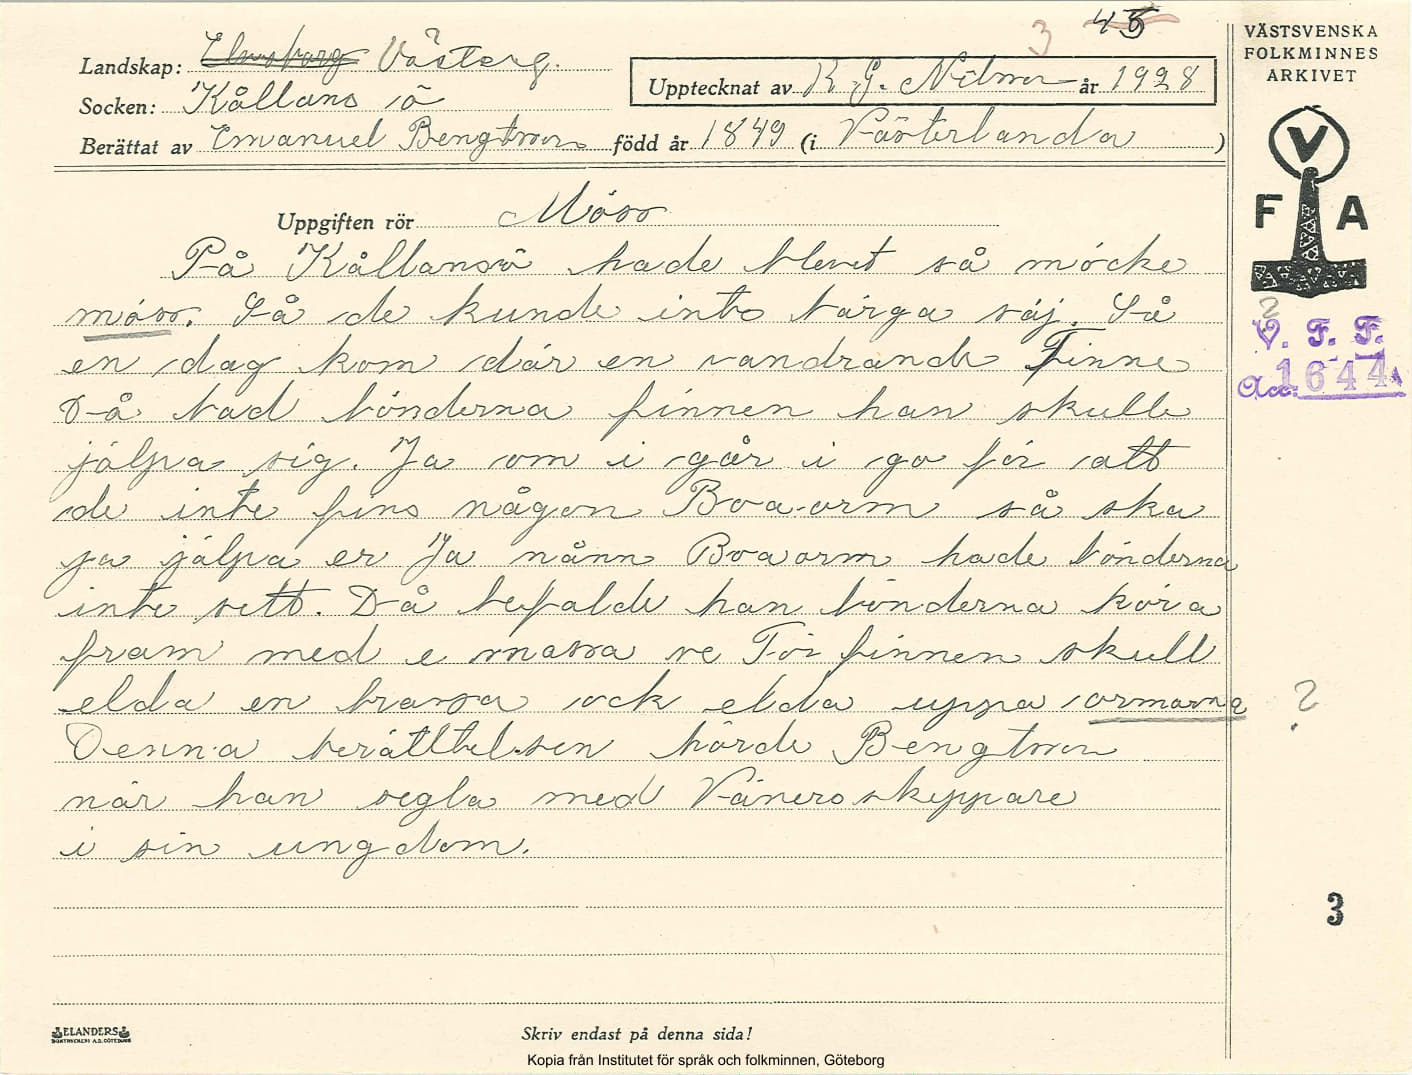 3 45
Landskap: Elvsborg Västerg.
Socken: Kållans ö
Upptecknat av K G. Nilson år 1928
Berättat av Emanuel Bengtson född år 1849 (i Västerlanda )
VÄSTSVENSKA
FOLKMINNES
ARKIVET
V
F A
Uppgiften rör Möss
På Kållansö hade blevet så möcke
möss. Så de kunde into bärga säj. Så
en dag kom där en vandrande Finne
Då bad bönderna finnen han skulle
jälpa sig. Ja om i går i go för att
de inte fins någon Boa-orm så ska
ja jälpa er Ja nånn Boaorm hade bönderna
inte sett. Då befalde han bönderna köra
fram med e massa ve För finnen skull
elda en brassa ock elda uppa ormarna
Denna berättelsen hörde Bengtson
när han segla med Väners skeppare
i sin ungdom.
?
V. F. F.
Acc. 1644
?
3
ELANDERS
BOKTRYCKERI A.B. GÖTEBORG
Skriv endast på denna sida!
Kopia från Institutet för språk och folkminnen, Göteborg